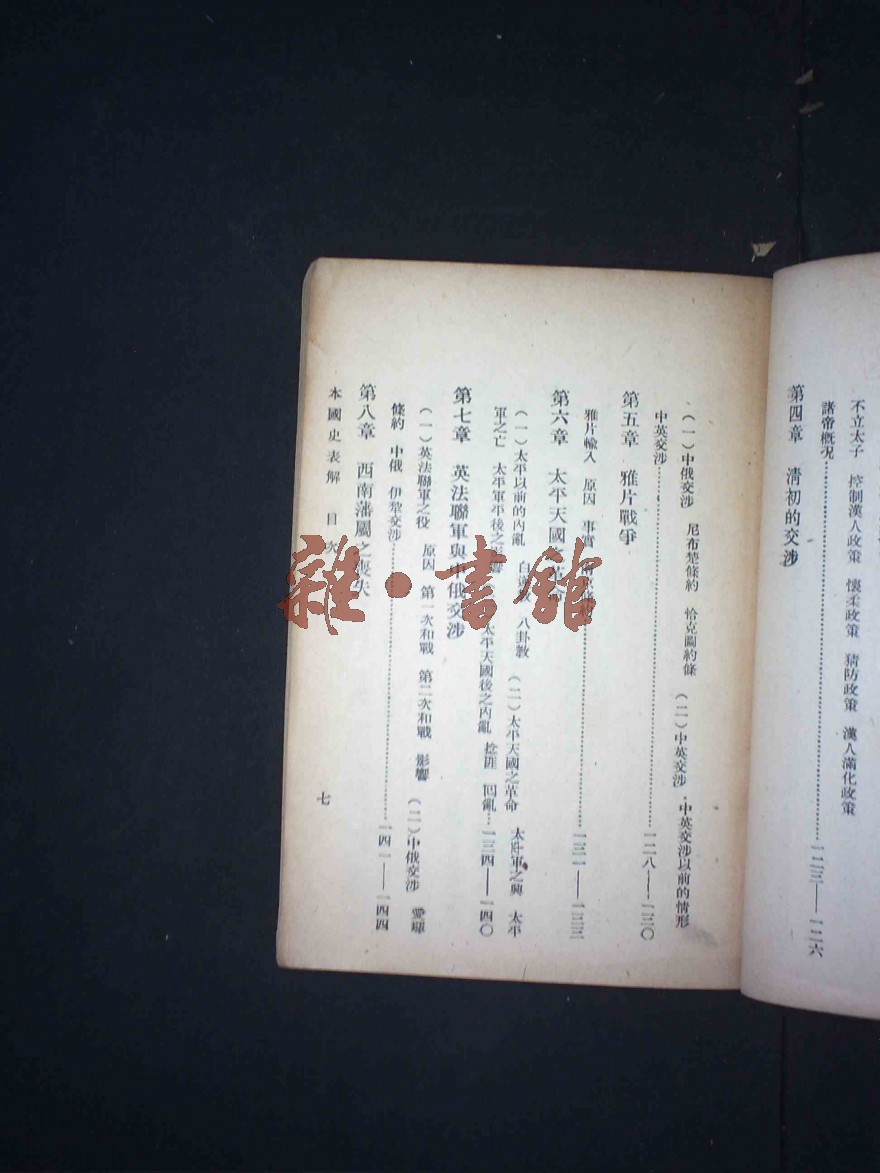 不立太子 控制漢人政策 懷柔政策 猜防政策 漢人滿化政策
諸帝概況……一二三——一二六
第四章 淸初的交涉
(一)中俄交涉 尼布楚條約 恰克圖約條 (二)中英交涉 中英交涉以前的情形
中英交涉……一二八——一三〇
第五章 雅片戰爭
雅片輸入 原因 事實……一三一——一三三
第六章 太平天國之革命
(一)太平以前的內亂 白蓮教 八卦教 (二)太平天國之革命 太平軍之興 太平
軍之亡 太平軍平後之影響 太平天國後之內亂 捻匪 回亂…一三四——一四〇
第七章 英法聯軍與中俄交涉
(一)英法聯軍之役 原因 第一次和戰 第二次和戰 影響 (二)中俄交涉 愛琿
條約 中俄 伊犂交涉……一四一——一四四
第八章 西南藩屬之喪失
本國史表解 目次
七
雜·書館